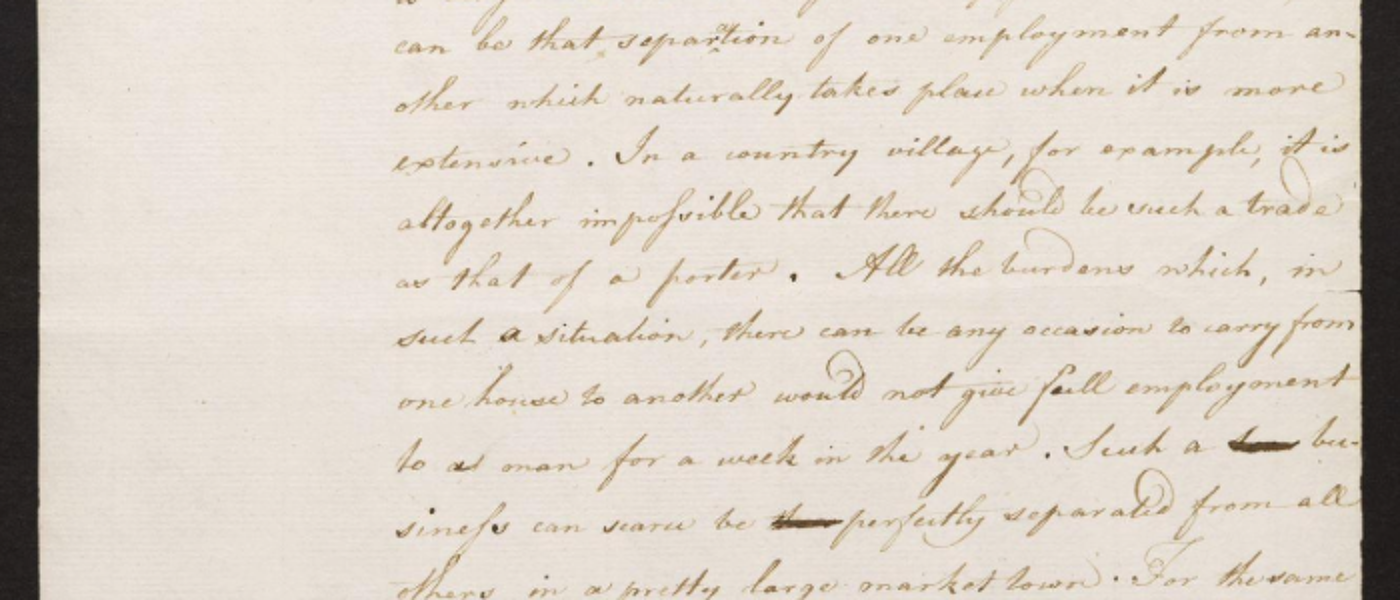 can be that separation of one employment from an-
other which naturally takes place when it is more
extensive. In a country village, for example, it is
altogether impossible that there should be such a trade
as that of a porter. All the burdens which, in
such a situation, there can be any occasion to carry from
one house to another would not give full employment
to a man for a week in the year. Such a bu-
siness can scarce be perfectly separated from all
others in a pretty large market town. For the same